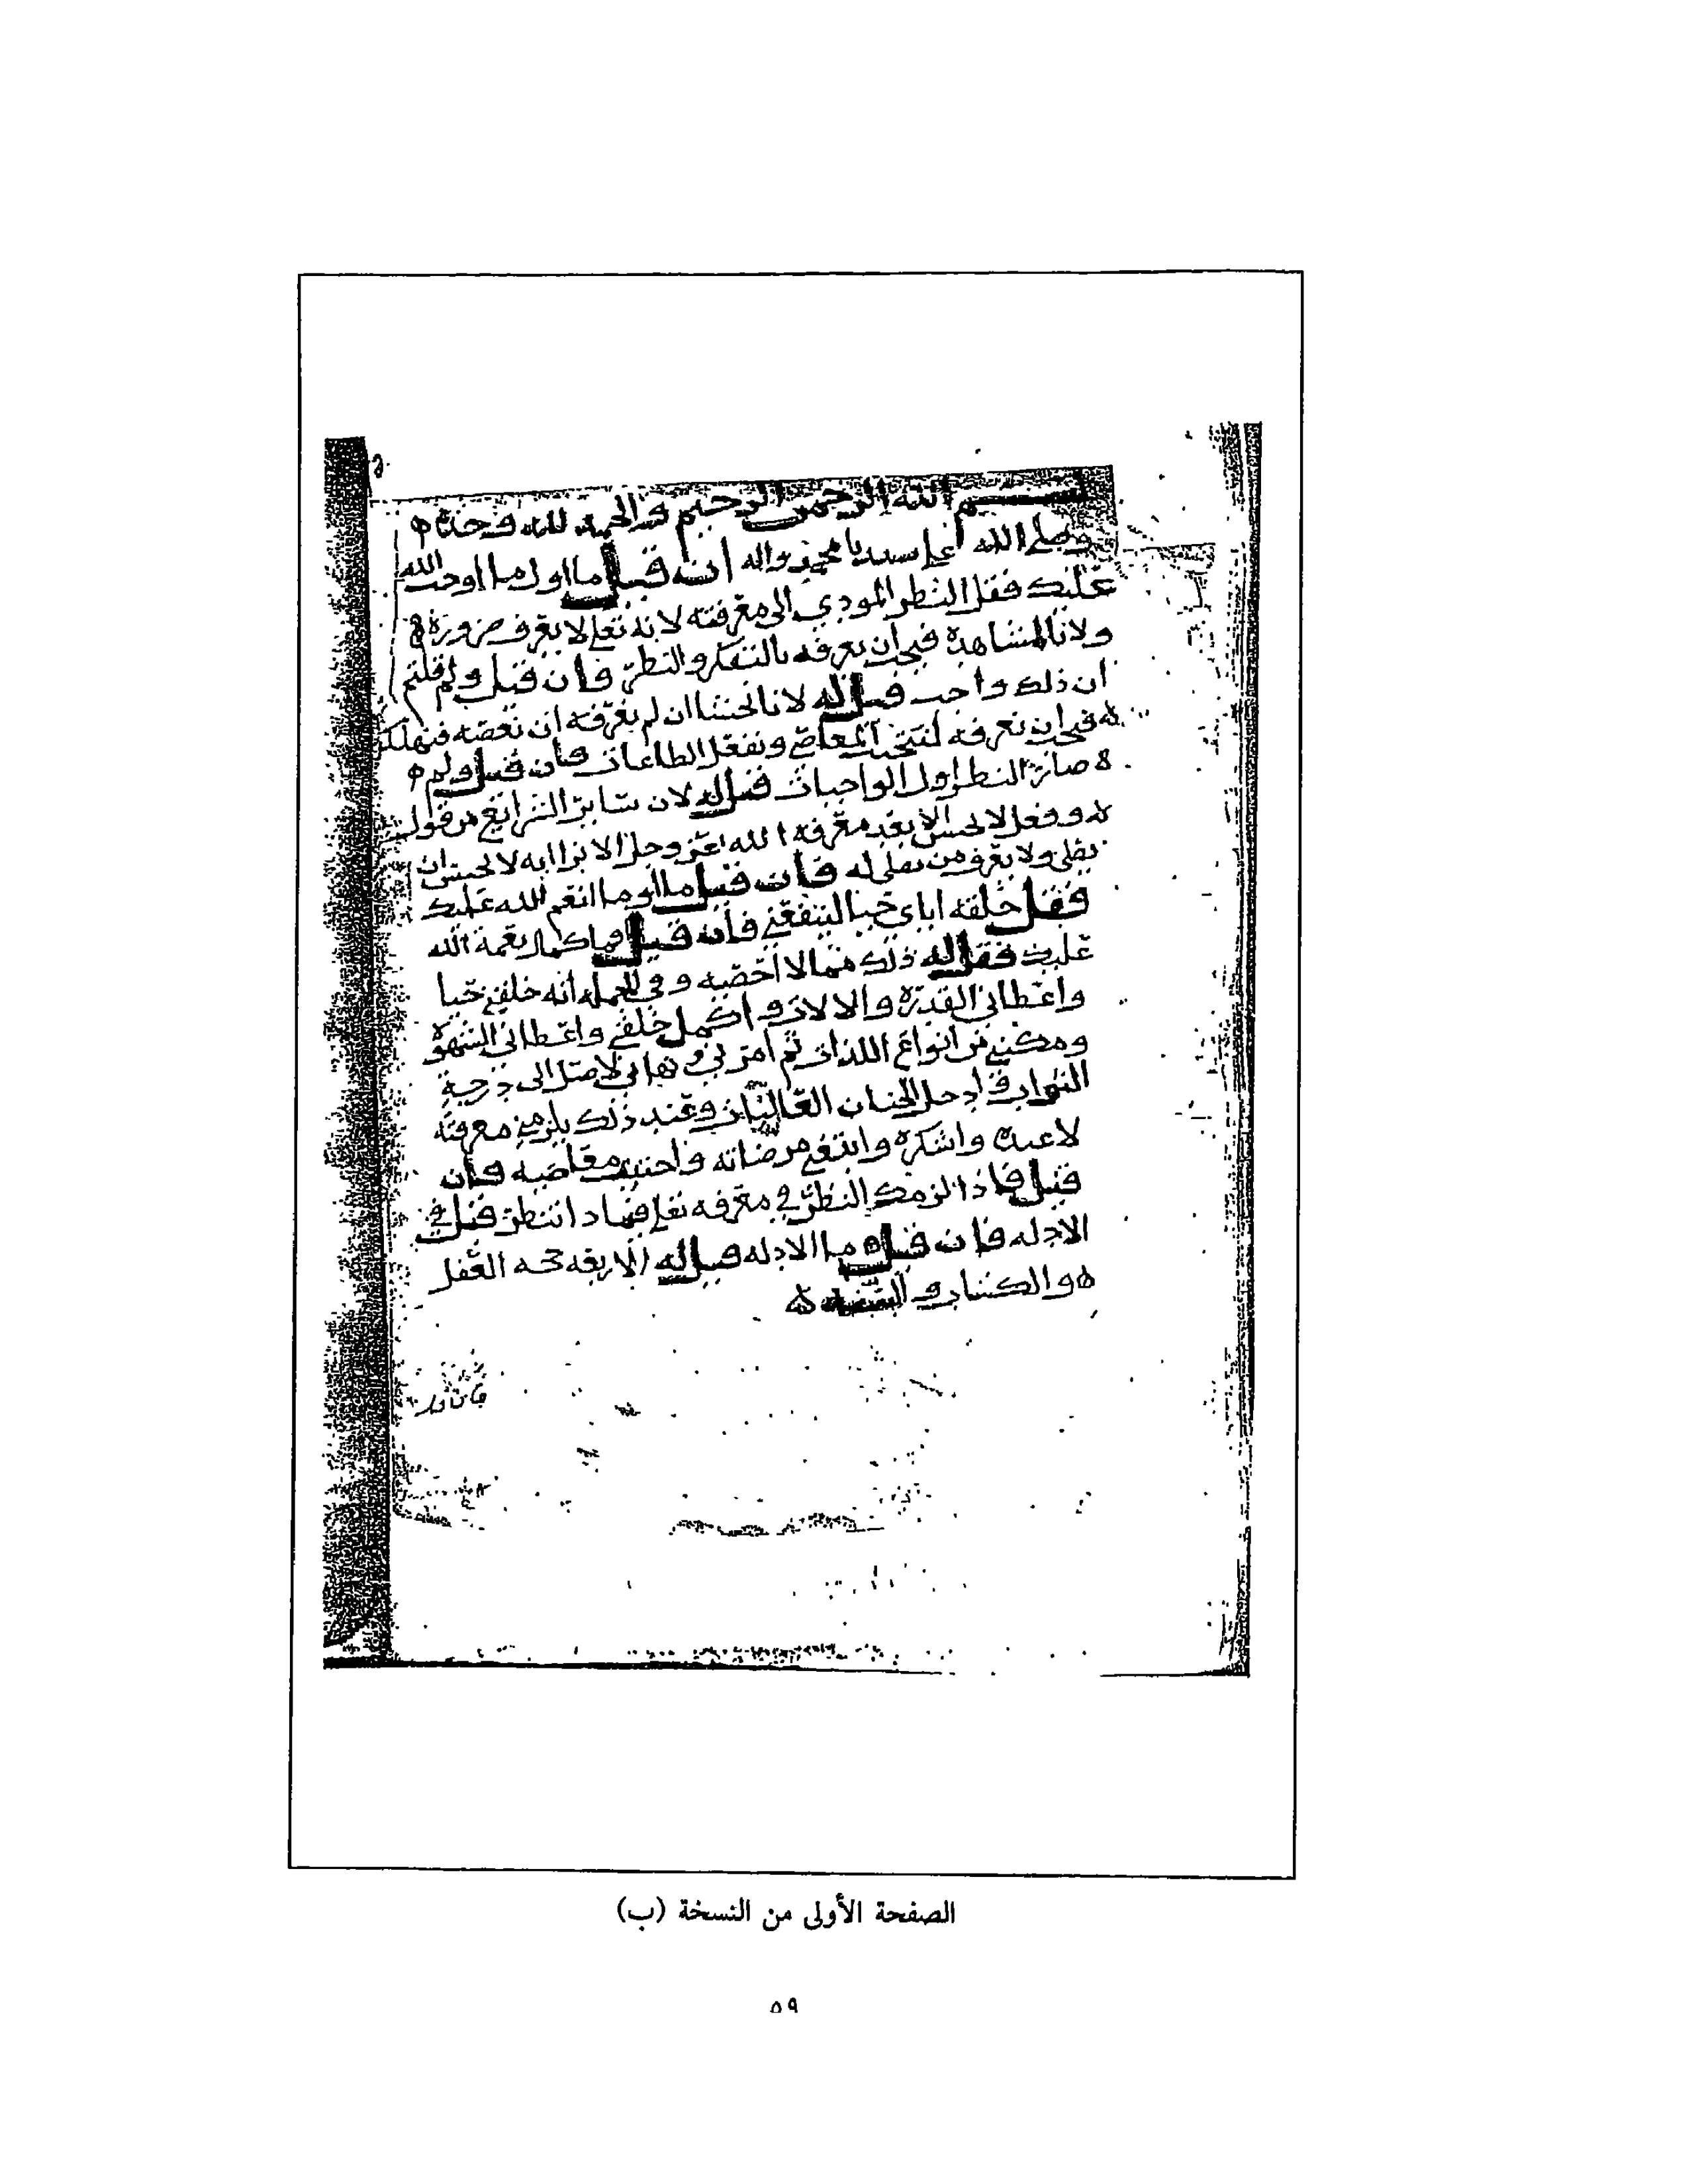 بسم الله الرحمن الرحيم والحمد لله وحده
وصلى الله على سيدنا محمد واله ان قيل ما اول ما اوجب الله
عليك فقل النظر المودي الى معرفته لانه تعلى لا يعرف ضرورة
ولا بالمشاهدة فيجب ان يعرفه بالتفكر والنظر فان قيل ولم قلتم
ان ذلك واجب قيل له لانا نخشا ان لم نعرفه ان نعصه فنهلك
فيجب ان نعرفه لنتجنب المعاصي ونفعل الطاعات فان قيل ولم
صار النظر اول الواجبات قيل له لان سائر الشرائع من قول
وفعل لا يحسن الا بعد معرفة الله عز وجل الا ترا انه لا يحسن ان
يصلي ولا يعرف من يصلي له فان قيل ما اول ما انعم الله عليك
فقل خلقه اياي حيا لينفعني فان قيل وما كمال نعمة الله
عليك فقل له ذلك مما لا احصيه وفي الجملة انه خلقني حيا
واعطاني القدرة والالات واكمل خلقي واعطاني الشهوة
ومكنني من انواع اللذات ثم امرني ونهاني لاصل الى درجة
الثواب وادخل الجنان العاليات وعند ذلك يلزمني معرفته
لاعبده واشكره وابتغي مرضاته واجتنب معاصيه فان
قيل فاذا لزمك النظر في معرفه تعلى فيما ذا تنظر قيل في
الادله فان قيل وما الادله قيل له الاربعه حجه العقل
والكتاب والسنه
الصفحة الأولى من النسخة (ب)
٥٩